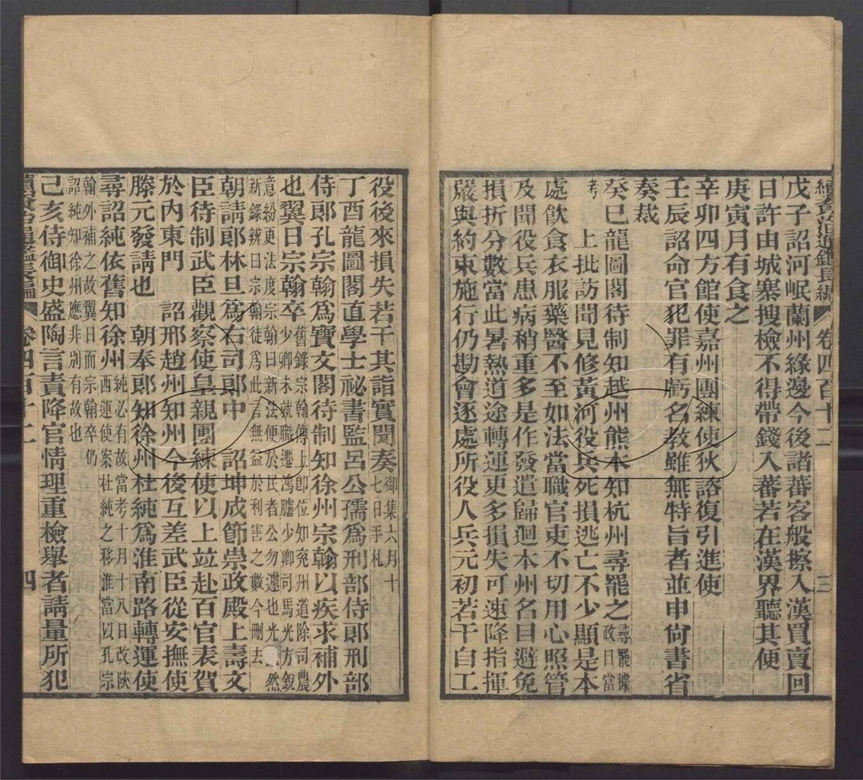 續資治通鑑長編 卷四百十二 三
戊子詔河岷蘭州緣邊今後諸蕃客般擦入漢買賣回
日許由城寨搜檢不得帶錢入蕃若在漢界聽其使
庚寅月有食之
辛卯四方館使嘉州團練使狄諮復引進使
壬辰詔命官犯罪有虧名教雖無特旨者並申尚書省
奏裁
癸巳龍圖閣待制知越州熊本知杭州尋罷之尋罷據政目當
考 上批訪聞見修黃河役兵死損逃亡不少顯是本
處飲食衣服藥醫不至如法當職官吏不切用心照管
及聞役兵患病稍重多是作發遣歸迴本州名目避免
損折分數當此暑熱道途轉運更多損失可速降指揮
嚴與約束施行仍勘會逐處所役人兵元初若干自工
役後來損失若干其詣實聞奏御集六月十七日手札
丁酉龍圖閣直學士祕書監呂公孺為刑部侍郎刑部
侍郎孔宗翰為寶文閣待制知徐州宗翰以疾求補外
也翼日宗翰卒舊錄宗翰傳上即位知兗州道除司農少卿未就職遷鴻臚少卿司馬光方銳
意紛更法度宗翰曰新法便於民者公勿遽也光然新錄辨曰宗翰徒為此言無益於利害之數今刪去
朝請郎林旦為右司郎中 詔坤成節崇政殿上壽文
臣待制武臣觀察使皇親團練使以上竝赴百官表賀
於內東門 詔邢趙州知州今後互差武臣從安撫使
滕元發請也 朝奉郎知徐州杜純為淮南路轉運使
尋詔純依舊知徐州純必有故當考十月十八日改陝西運使案杜純之移淮當因孔宗
翰外補之故翼日而宗翰卒仍詔純知徐州應非別有故也
己亥侍御史盛陶言責降官情理重檢舉者請量所犯
續資治通鑑長編 卷四百十二 四